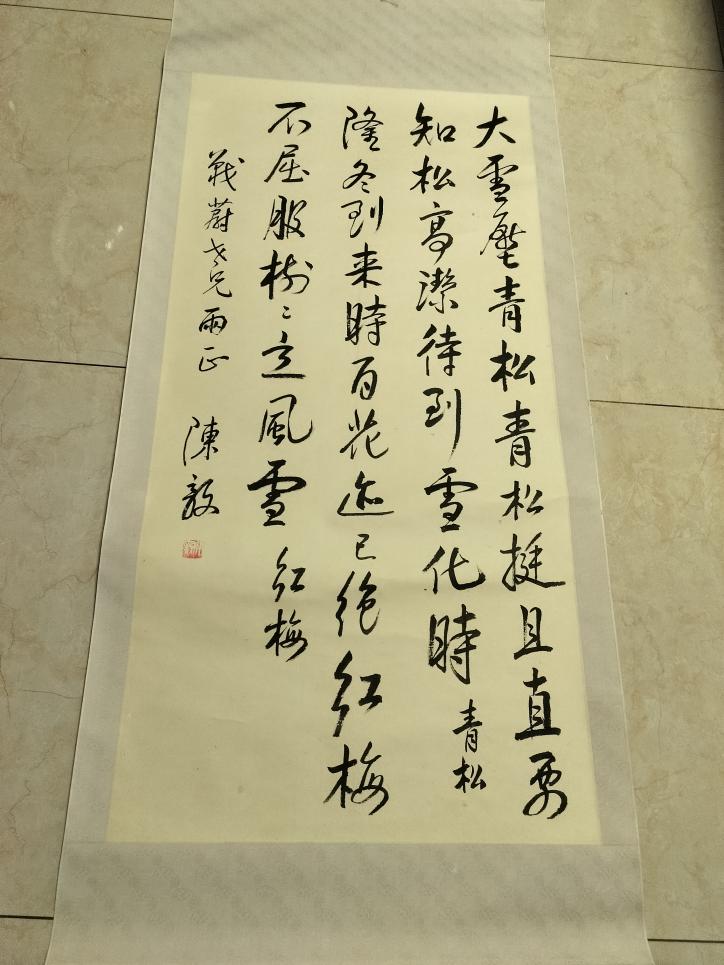 大雪壓青松青松挺且直要
知松高潔待到雪化時 青松
隆冬到来時百花迹已绝红梅
不屈服樹〻立風雪 红梅
戰蔚老兄兩正
陳毅